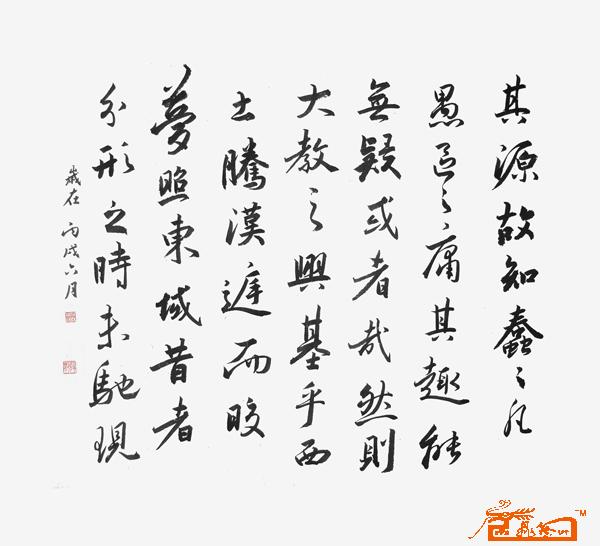 其源故知蠢々凡
愚區々庸其趣能
無疑或者哉然則
大教之興基乎西
土騰漢庭而皎
夢照東域昔者
分形之時未馳現
歲在丙戌六月